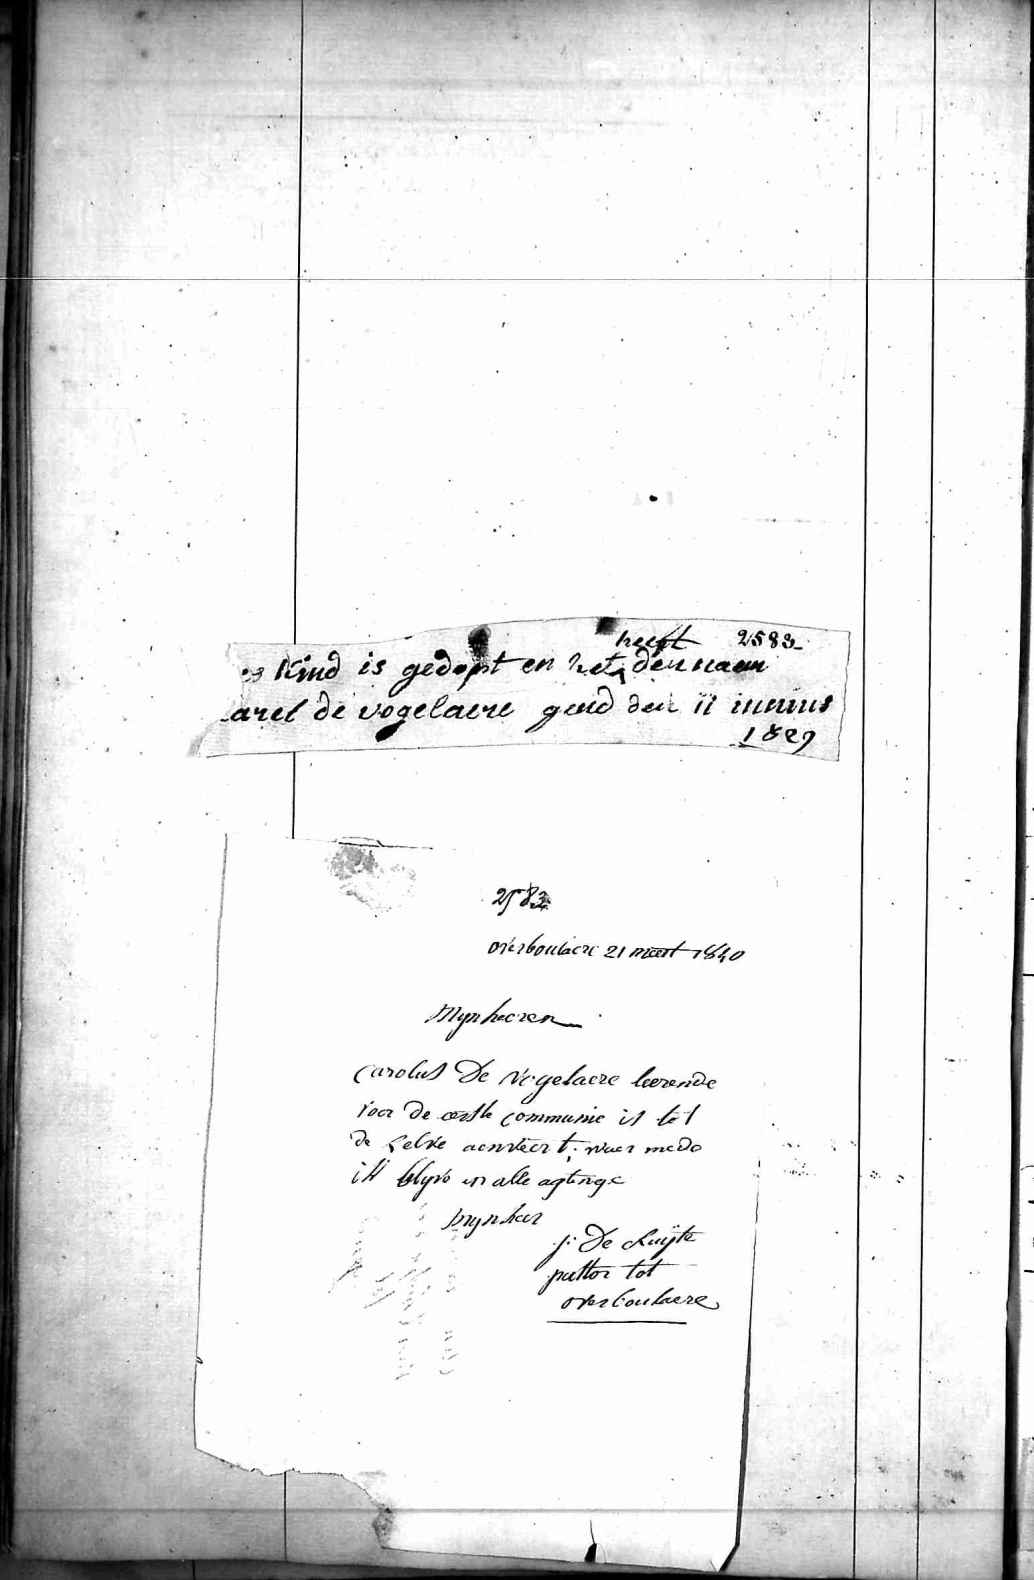 heeft 2583
es Kind is gedopt en het den naem
Carel de vogelaere gend den 11 iunius
1829
2583
overboulaere 21 maert 1840
Mynheeren
Carolus De Vogelaere leerende
voor De eerste communie is tot
de selve aenveert; waer mede
ik blyve in alle agtinge
Mynheer
j: De Kuyte
pastor tot
overboulaere